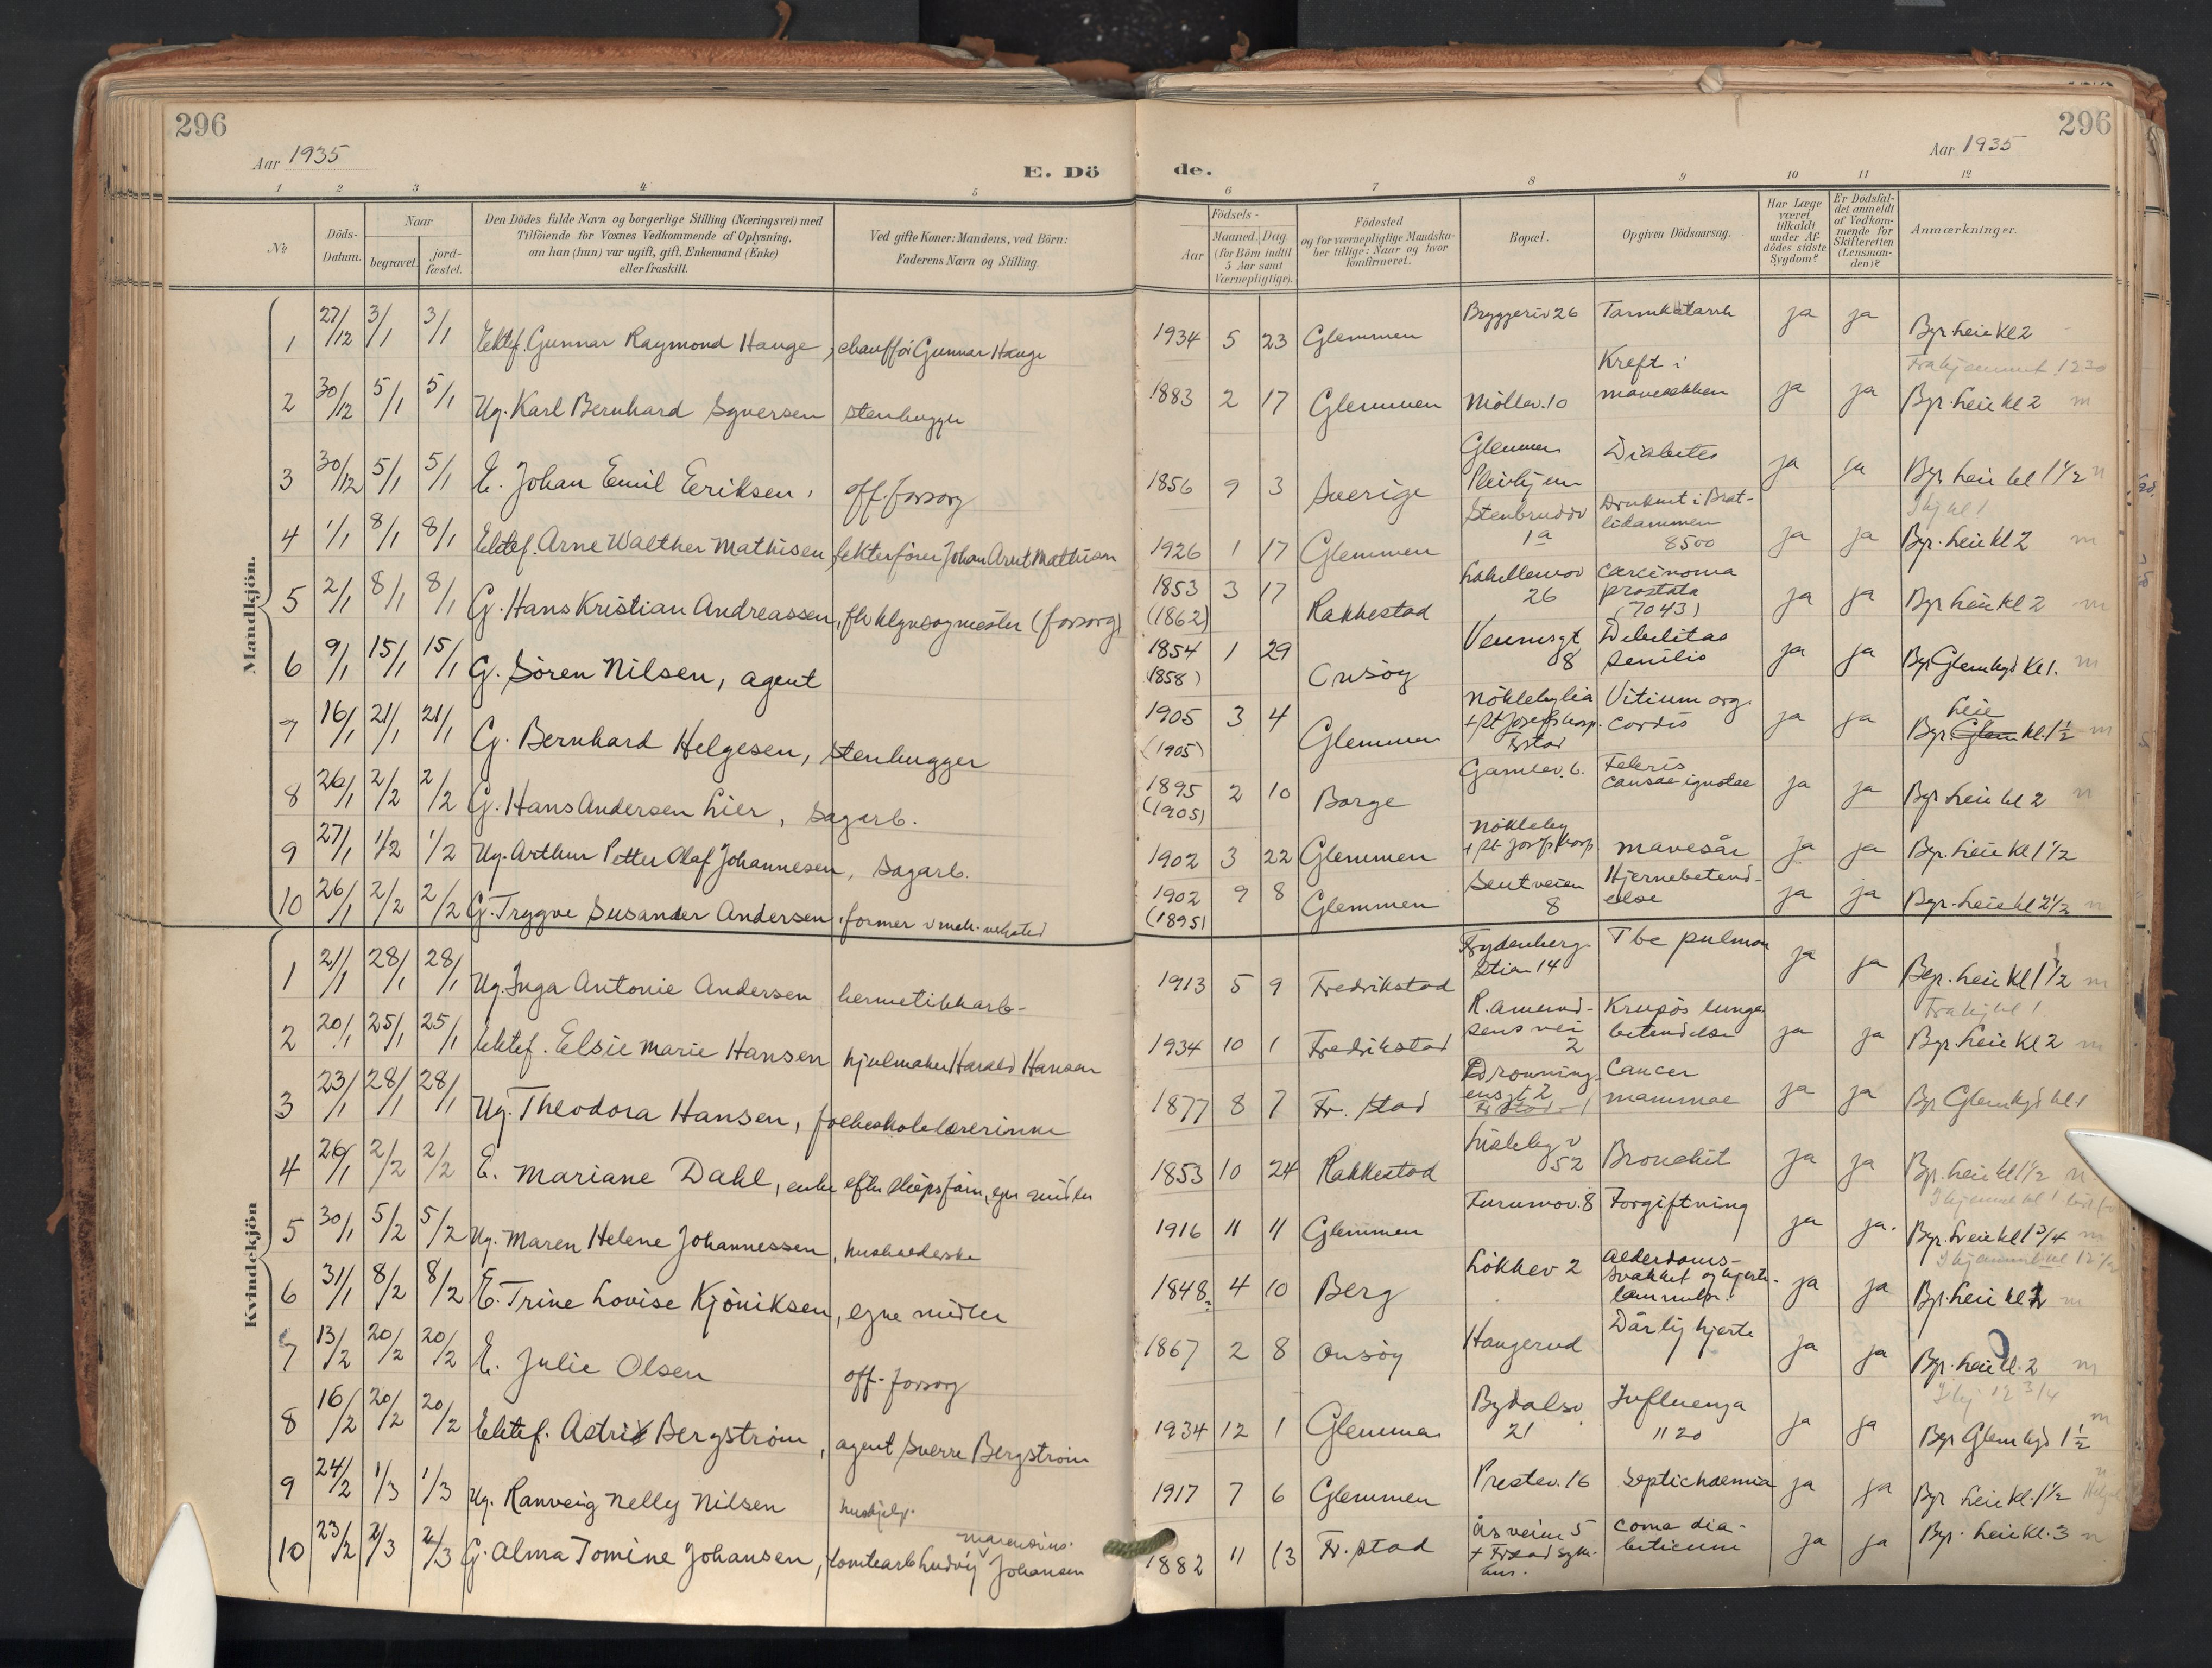 296
Aar 1935
E. Dö
1 2 3 4 5
№
Döds-
Datum.
Naar
begravet.
jord-
fæstet.
Den Dödes fulde Navn og borgerlige Stilling (Næringsvei) med
Tilföiende for Voxnes Vedkommende af Oplysning,
om han (hun) var ugift, gift, Enkemand (Enke)
eller fraskilt.
Ved gifte Koner: Mandens, ved Börn:
Faderens Navn og Stilling.
Mandkjön.
1 27/12 3/1 3/1 Ektef. Gunnar Raymond Hauge, chauffør Gunnar Hauge
2 30/12 5/1 5/1 Ug. Karl Bernhard Syversen stenhugger
3 30/12 5/1 5/1 E. Johan Emil Eriksen, off. forsorg
4 1/1 8/1 8/1 Ektef. Arne Walther Mathisen, Johan Arnt Mathisen
5 2/1 8/1 8/1 G. Hans Kristian Andreassen, (forsorg)
6 9/1 15/1 15/1 G. Sören Nilsen, agent
7 16/1 21/1 21/1 G. Bernhard Helgesen, stenhugger
8 26/1 2/2 2/2 G. Hans Andersen Lier, sagarb.
9 27/1 1/2 1/2 Ug. Arthur Petter Olaf Johannesen, sagarb.
10 26/1 2/2 2/2 G. Trygve Susander Andersen, former v mek. veksted
Kvindekjön
1 21/1 28/1 28/1 Ug. Inga Antonie Andersen hermetikkarb-
2 20/1 25/1 25/1 Ektef. Elsie Marie Hansen hjulmaker Harald Hansen
3 23/1 28/1 28/1 Ug. Theodora Hansen, folkeskolelærerinne
4 26/1 2/2 2/2 E. Mariane Dahl, enke efter skipsfører, egne midler
5 30/1 5/2 5/2 Ug. Maren Helene Johannessen, husholderske
6 31/1 8/2 8/2 E. Trine Lovise Kjöniksen, egne midler
7 13/2 20/2 20/2 E. Julie Olsen off. forsorg
8 16/2 20/2 20/2 Ektef. Astrid Bergström, agent Sverre Bergström
9 24/2 1/3 1/3 Ug. Ranveig Nelly Nilsen hushjelp.
10 23/2 2/3 2/3 G. Alma Tomine Johansen, tomtearb Ludvig Marensius Johansen
296
Aar 1935
de.
6 7 8 9 10 11 12
Födsels-
Aar
Maaned. Dag.
(for Börn indtil
5 Aar samt
Værnepligtige).
Födested
og for værnepligtige Mandska-
ber tillige: Naar og hvor
konfirmeret.
Bopæl.
Opgiven Dödsaarsag.
Har Læge
været
tilkaldt
under Af-
dödes sidste
Sygdom?
Er Dödsfal-
det anmeldt
af Vedkom-
mende for
Skifteretten
(Lensman-
den)?
Anmærkninger.
1934 5 23 Glemmen Bryggeriv 26 Tarmkatarrh ja ja Byr. Leie kl 2
1883 2 17 Glemmen Möllev. 10 Kreft i
mavesekken ja ja Byr. Leie kl 2 m
1856 9 3 Sverige Glemmen
Pleiehjem Diabetes ja ja Byr Leie kl 1 1/2
1926 1 17 Glemmen Stenbruddv
1a Druknet i Brat-
lidammen
8500 ja ja Byr. Leie kl 2 m
1853 3 17
(1862) Rakkestad
26 carcinoma
prostata
(7043) ja ja Byr Leie kl 2 m
1854 1 29
(1858) Onsöy Vennsgt
8 Debilitas
senilis ja ja Byr Glemkgd kl 1. m
1905 3 4
(1905) Glemmen Nöklebylia
+ St Josefs hosp.
Frstad Vitium org.
cordis ja ja Leie
Byr Glem kl. 1 1/2 m
1895 2 10
(1905) Borge Gamlev. 6. Febris
causae ignotae ja ja Byr Leie kl 2
1902 3 22 Glemmen Nökleby
+ St Josefs hosp mavesår ja ja Byr. Leie kl 1 1/2
1902 9 8
(1895) Glemmen Sentveien
8 Hjernebetend-
else ja ja Byr. Leie kl 2 1/2
1913 5 9 Fredrikstad Frydenberg-
stien 14 Tbc pulmon ja ja Byr. Leie kl 1 1/2 m
1934 10 1 Fredrikstad R. Amund-
sens vei
2 Krupös lunge
betendelse ja ja Byr. Leie kl 2 m
1877 8 7 Fr. stad Dronning-
ensgt 2 Cancer
mammae ja ja Byr Glemkgd kl 1
1853 10 24 Rakkestad Lisleby v
52 Bronchit ja ja Byr. Leie kl 1 1/2
1916 11 11 Glemmen Furumov. 8 Forgiftning ja ja. Byr. Leie kl 1 3/4 m
1848 4 10 Berg Lökkev 2 Alderdoms-
svakhet og hjerte-
ja ja Byr. Leie kl m
1867 2 8 Onsöy Haugerud Dårlig hjerte ja ja Byr. Leie kl. 2 m
1934 12 1 Glemmen Bydalsv.
21 Influenza
1120 ja ja Byr Glemkgd 1 1/2 m
1917 7 6 Glemmen Prestev. 16 Septichaemia ja ja Byr Leie kl. 1 1/2
1882 11 13 Fr. stad Åsveien 5
+ Frstad syke-
hus. coma dia-
beticum ja ja Byr. Leie kl. 3